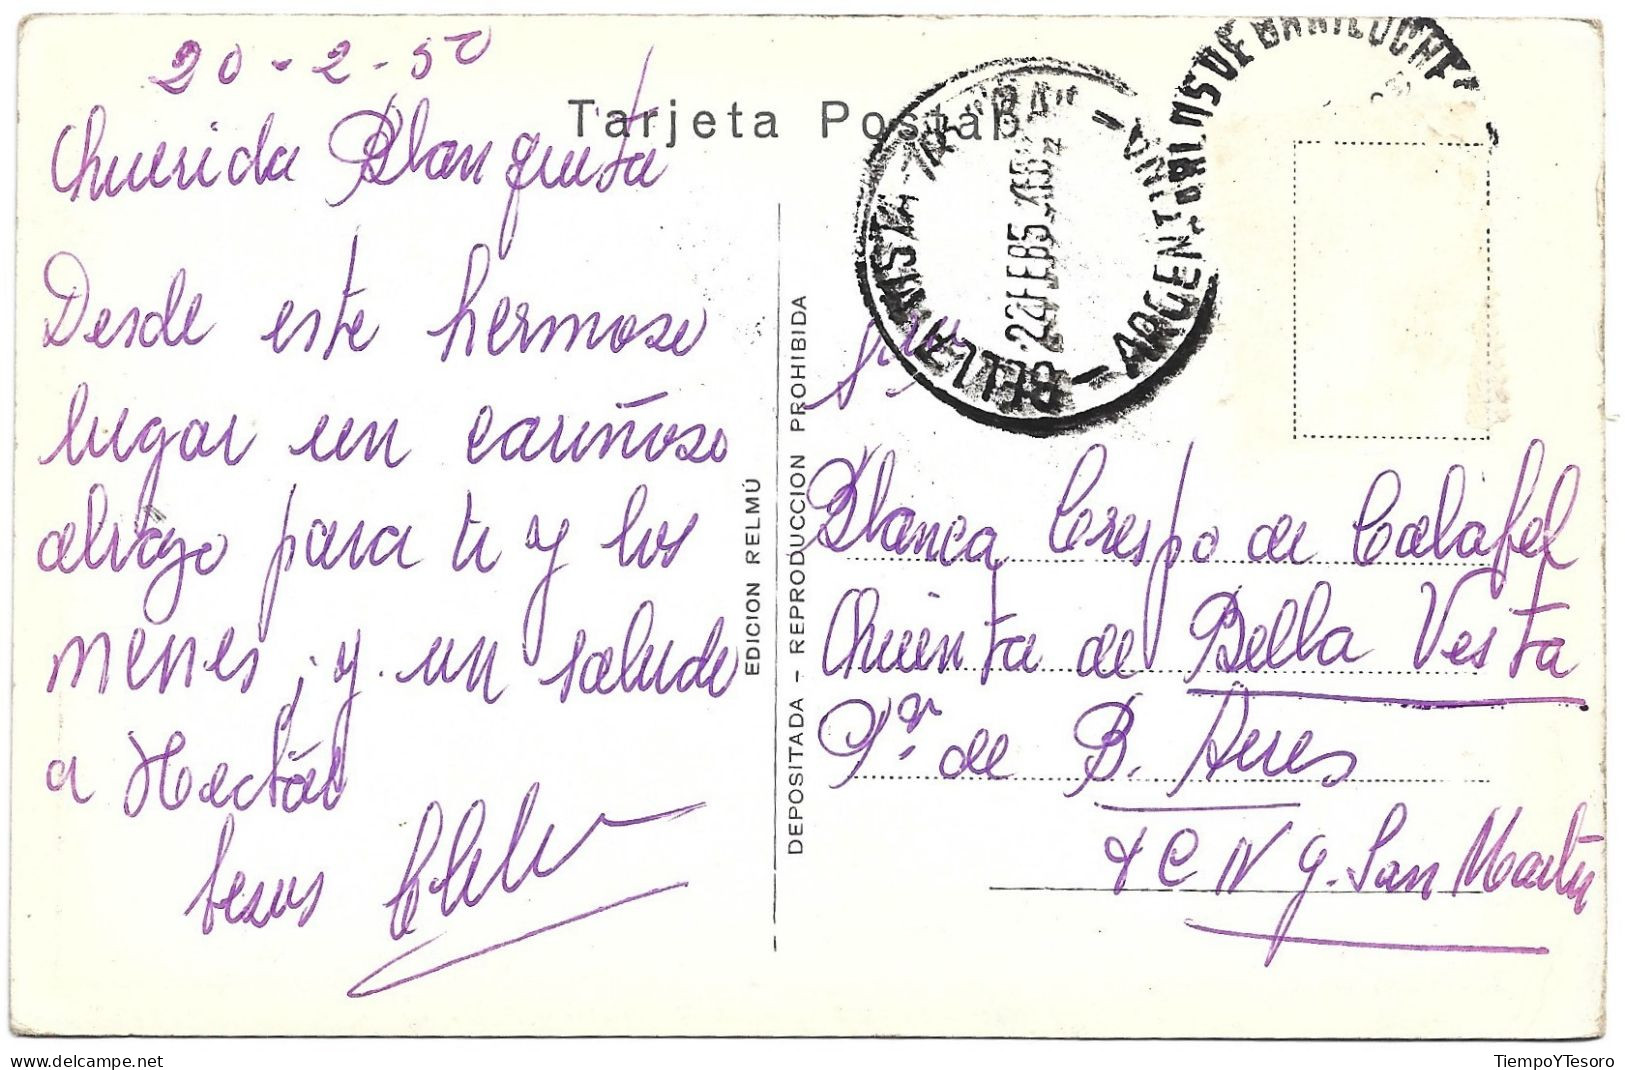 20-2-50
Tarjeta Postal
Querida Blanquita
Desde este hermoso
lugar un cariñoso
abrazo para ti y los
nenes, y un saludo
a Hector
besos
EDICION RELMÚ
DEPOSITADA - REPRODUCCION PROHIBIDA
BELLA VISTA
22 FEB 5
ARGENTINA
CARLOS DE BARILOCHE
Blanca Crespo de Calafel
Quinta de Bella Vista
Pª de B. Aires
F C N G. San Martin
TiempoYTesoro